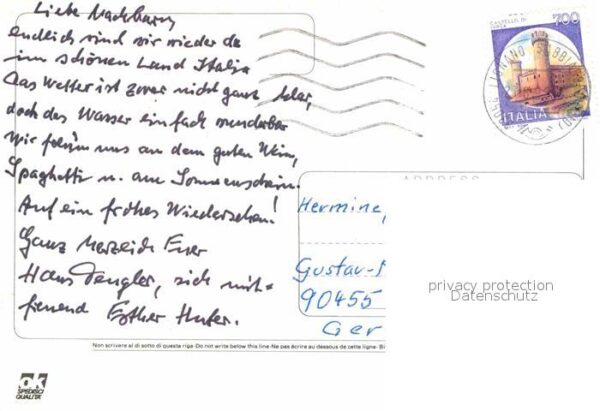 Liebe Nachbarn,
endlich sind wir wieder da
im schönen Land Italia
Das Wetter ist zwar nicht ganz klar,
doch das Wasser einfach wunderbar
Wir freuen uns an dem guten Wein,
Spaghetti u. am Sonnenschein.
Auf ein frohes Wiedersehen!
Ganz herzlich Euer
Hans, sich mit-
freuend Esther
700
ITALIA
ADDRESS
Hermine,
Gustav-
90455
Ger
privacy protection
Datenschutz
Non scrivere al di sotto di questa riga-Do not write below this line-Ne pas écrire au dessous de cette ligne-
OK
SPEDISCI
QUALITÀ